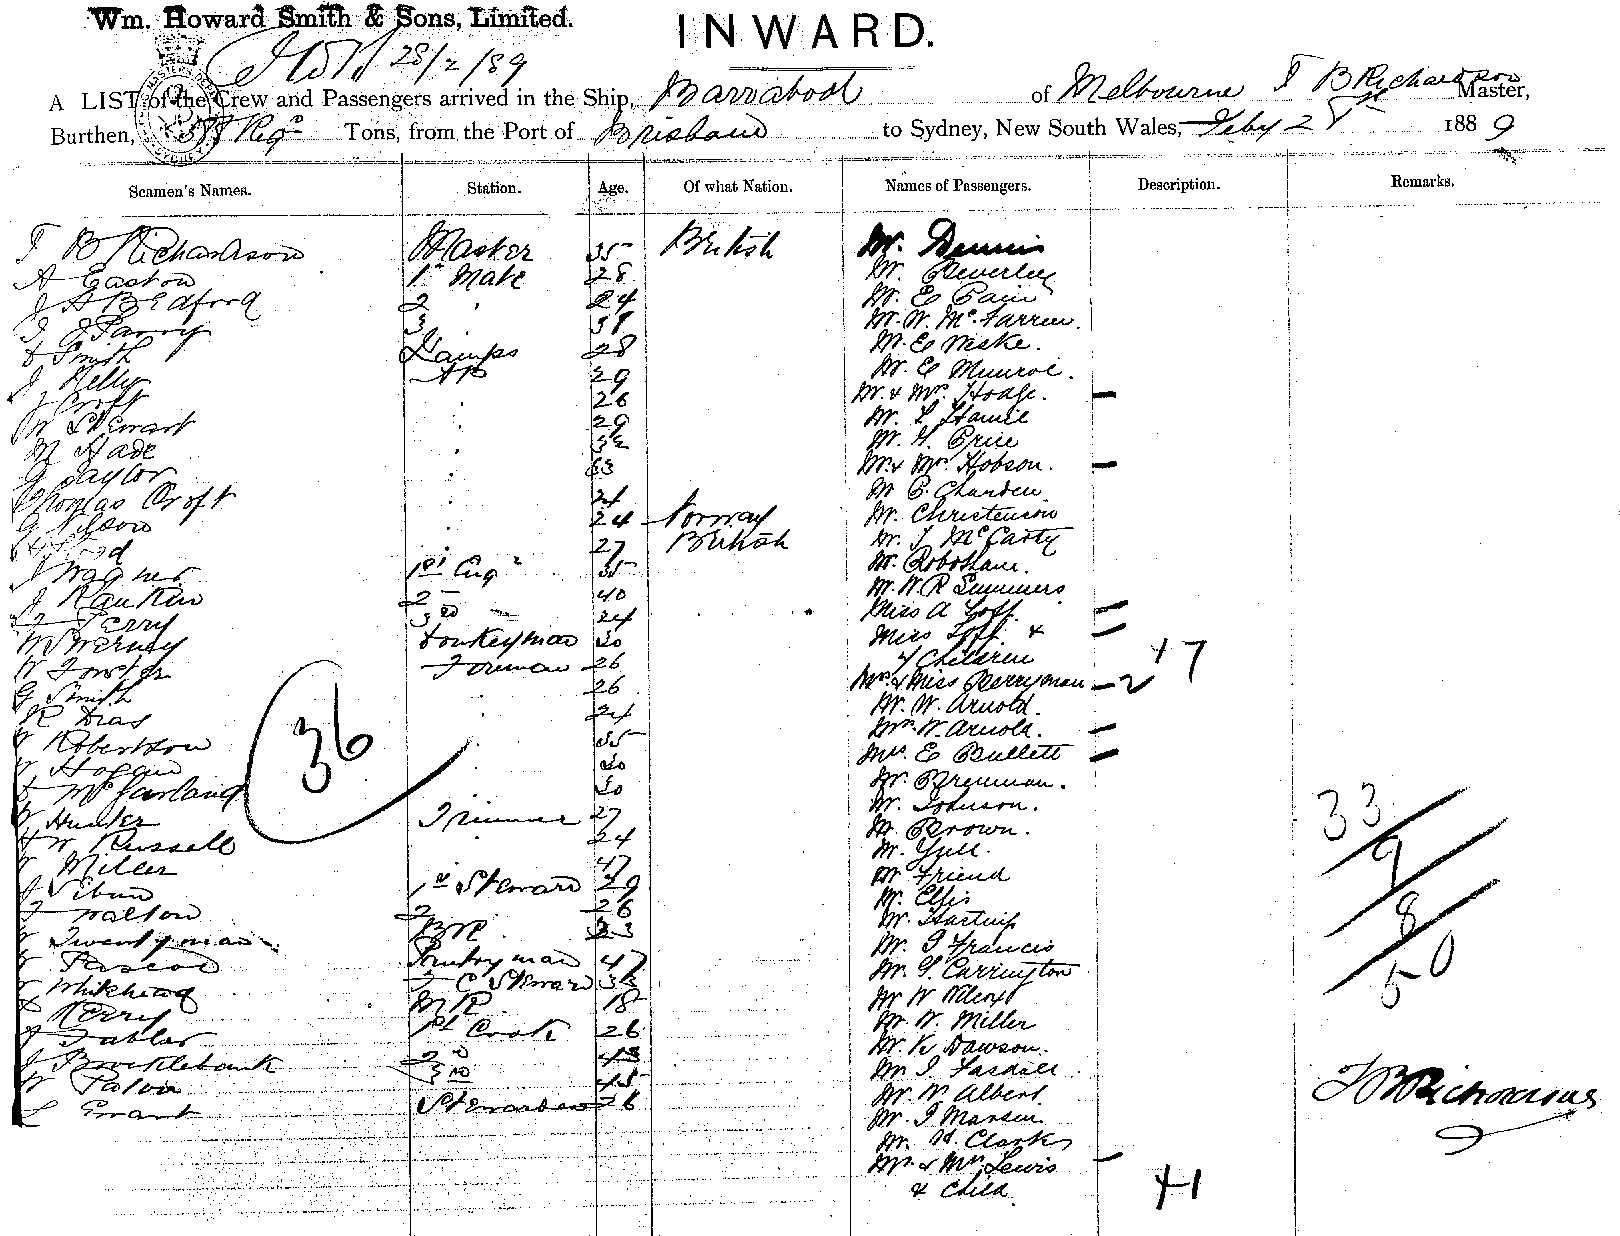 Wm. Howard Smith & Sons, Limited.
INWARD.
28/2/89
A LIST of the Crew and Passengers arrived in the Ship, Barrabool of Melbourne T B Richardson Master,
Burthen, Tons, from the Port of Brisbane to Sydney, New South Wales, Feby 28 1889
Seamen's Names. Station. Age. Of what Nation. Names of Passengers. Description. Remarks.
T B Richardson Master 35 British Mr. Dennis
A Easton 1st Mate 28 Mr. Beverley
J A Bedford 2 " 24 Mr. E Pain
T J Parry 3 Mr. W. McFarren.
Smith Lamps 28 Mr. E Niske.
J Kelly AB 29 Mr. E Munroe.
J Croft " 26 Mr. & Mrs. Hodge. –
W Stewart " 29 Mr. L Hamil
M Hade " 32 Mr. G. Price
G Taylor " 33 Mr. & Mrs. Hobson. –
Thomas Croft " 21 Mr C. Charden
G Nilson " 24 Norway Mr. Christenson
27 British Mr. T McCarty
J Wagner 1st Eng r 35
J Rankin 2 – 40 Mr. W. R Summers
Perry 3rd – 24 Miss A Toff. –
Donkeyman 30 Miss Toff. & –
W Foster Fireman 26 7 Children +7
G Smith " 26 Mrs. & Miss Perryman – 2
R Dias " 24 Mr. W. Arnold.
Robertson " 35 Mrs. W. Arnold. –
Hogan " 30 Mrs. E Bullett –
McFarland " 30 Mr. Brennan.
36
W Hunter Trimmer 27 Mr. Johnson.
W Russell " 24 Mr. Brown.
Miller 47 Mr. Gill.
J 1st Steward 29 Mr Friend
Walton 2 26 Mr. Ellis
Twentyman BR 23 Mr. Hartup
W Pascoe Pantryman 47 Mr. J Francis
Whitehead F C Steward 33 Mr. G. Carrington
Kerry MR 18 Mr W Wilcox
J Tabler 1st Cook 26 Mr. W. Miller
J Brocklebank 2 " 43 Mr. K Dawson.
W Paton 3rd 45 Mr J
L Grant Stewardess 26 Mr. W. Albert
Mr. J
Mr. H. Clarke
Mr. & Mrs. Lewis –
& Child +1
33
9
8
50
T B Richardson